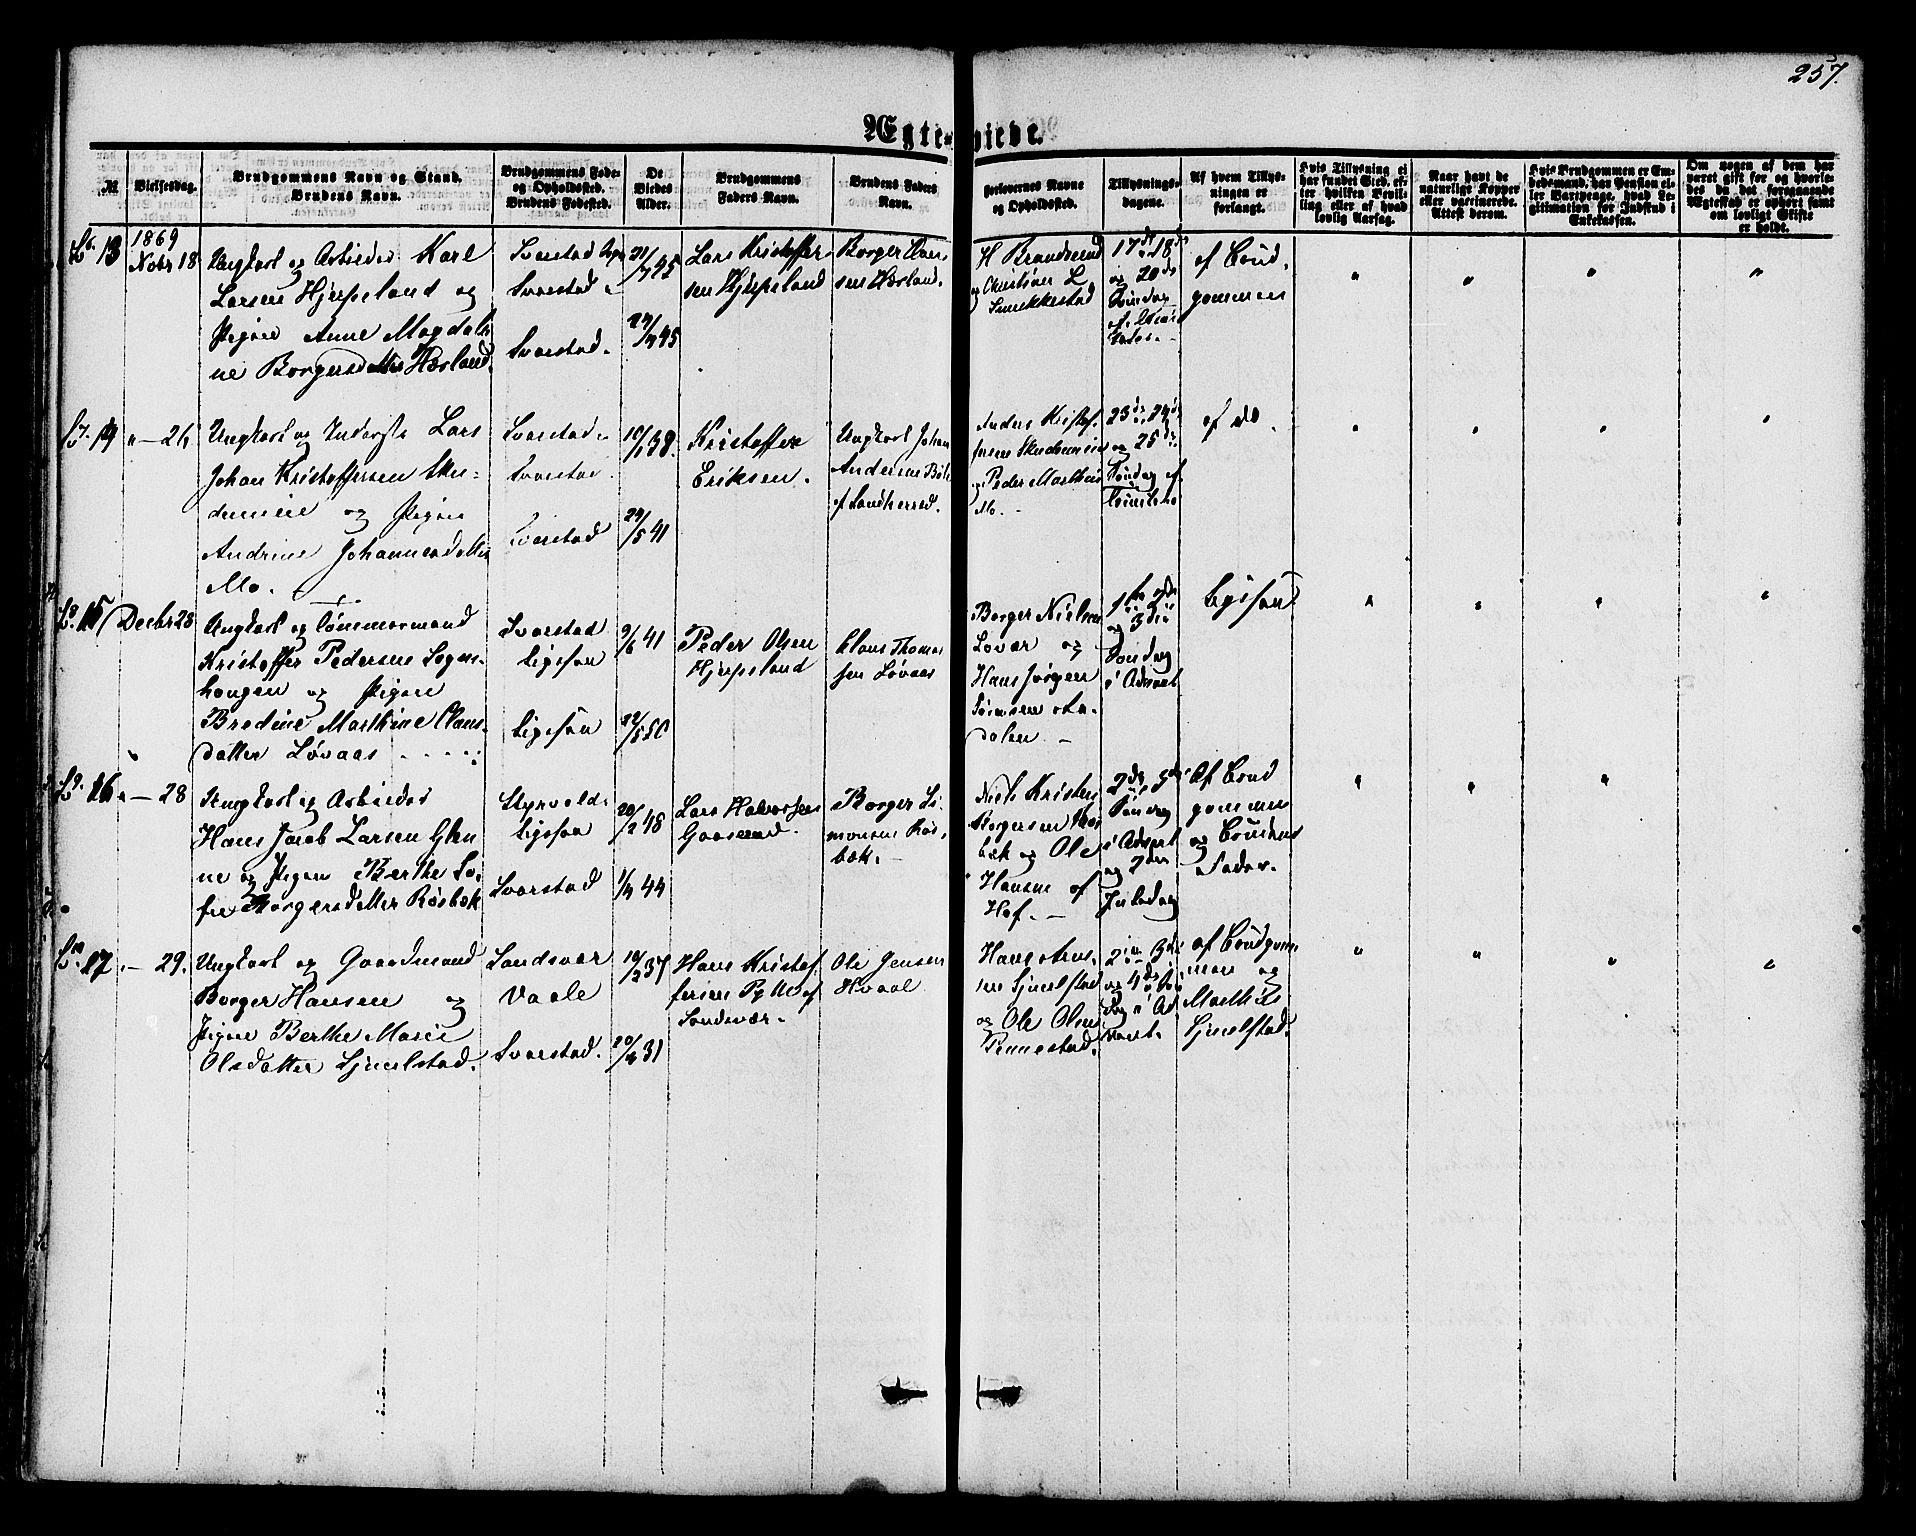 257.
Ægte-viede.
№.
Vielsesdag.
Brudgommens Navn og Stand.
Brudens Navn.
Brudgommens Føde-
og Opholdssted.
Brudens Fødested.
De
Viedes
Alder.
Brudgommens
Faders Navn.
Brudens Faders
Navn.
Forlovernes Navne
og Opholdssted.
Tillysnings-
dagene.
Af hvem Tillys-
ningen er
forlangt.
Hvis Tillysning ei
har fundet Sted, ef-
ter hvilken Bevil-
ling eller af hvad
lovlig Aarsag.
Naar havt de
naturlige Kopper
eller vaccinerede.
Attest derom.
Hvis Brudgommen er Em-
bedsmand, har Pension el-
ler Vartpenge, hvad Le-
gitimation for Indskud i
Enkekassen.
Om nogen af dem har
været gift før og hvorle-
des da det foregaaende
Ægteskab er ophørt samt
om lovligt Skifte
er holdt.
13
1869
Novbr 18
Ungkarl og Arbeider Karl
Larsen Hjerpeland og
Pigen Anne Magdale-
ne Borgersdatter Hærland.
Svarstad
Svarstad
Svarstad
21/7 45
24/4 45
Lars Kristoffer-
sen Hjerpeland
Borger Han-
sen Hærland.
H Brandsrud
og Christian L
Snekkestad
17de 18de
og 20de
Søndag
af Trini-
tatis.
af Brud-
gommen
14
" — 26
Ungkarl og Inderste Lars
Johan Kristoffersen Sku-
og Pigen
Andrine Johannesdatter
Mo.
Svarstad
Svarstad
Svarstad
10/1 38.
24/5 41
Kristoffer
Eriksen.
Ungkarl Johan
Andersen
af Sandherred.
Anders Kristof-
fersen
og Peder Marthins
Mo.
23de 24de
og 25de
Søndag af
af do.
15
Decbr 28
Ungkarl og Tømmermand
Kristoffer Pedersen Sogns-
haugen og Pigen
Bredine Marthine Claus-
datter Løvaas
Svarstad
Sigsfon
Sigsfon
9/6 41
22/5 50
Peder Olsen
Hjerpeland
Claus Thomas-
sen Løvaas
Borger Nielsen
og
Hans Jørgen
dalen
1ste 2den
og 3die
Søndag
i Advent
Sigsfon
16
" — 28
Ungkarl og Arbeider
Hans Jacob Larsen Glen-
ne og Pigen Berthe So-
fie Borgersdatter Røsbæk
Styrvold
Sigsfon
Svarstad
20/2 48
1/4 44
Lars Halvorsen
Gaaserud.
Borger Si-
monsen Røs-
bæk.
Niels Kristen
Borgersen Røs-
bæk og Ole
Hansen af
Hof.
2den 3die
Søndag
i Advent
og 2den
Juledag
Af Brud-
gommen
og Brudens
Fader.
17
" — 29.
Ungkarl og Gaardmand
Borger Hansen og
Pigen Berthe Marie
Olsdatter Sjuelstad.
Sandsvær
Vaale
Svarstad.
10/2 37
20/4 31
Hans Kristof-
fersen af
Sandsvær.
Ole Jensen
Hvaal
Sjuelstad
og Ole Olsen
Pennestad.
2den 3die
og 4de Søn-
dag i Ad-
vent.
af Brudgom-
men og
Mathis
Sjuelstad.